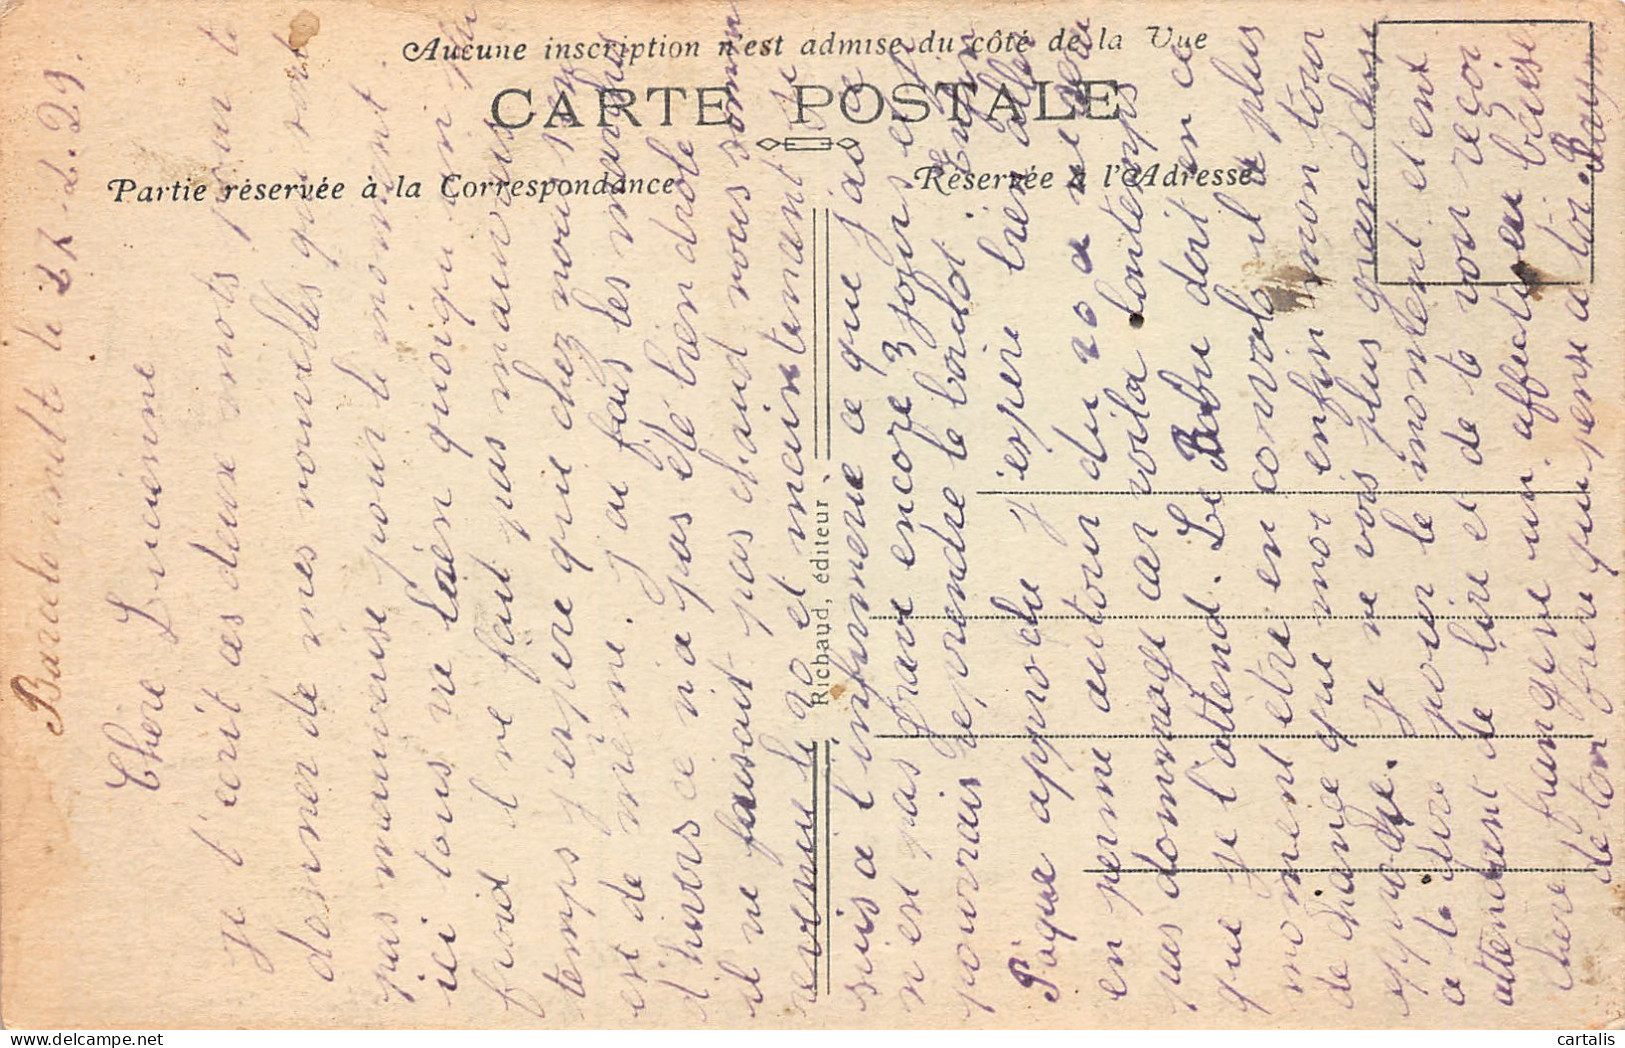 Aucune inscription n'est admise du côté de la Vue
CARTE POSTALE
Partie réservée à la Correspondance
Réservée à l'Adresse
Richaud, éditeur
le 27.2.29.
Chère Lucienne
Je t'ecrit ces deux mots pour te
donner de mes nouvelles qui sont
pas mauvaise pour le moment.
ici tous va bien quoiqu'on
froid il ne fait pas mauvais
temps j'espère que chez nous
est de même. J'ai fais les manœuvres
d'hivers ce n'a pas été bien drole
il ne faisait pas chaud nous sommes
revenu le 20 et maintenant je
suis a l'infirmerie ce que j'ai ce
n'est pas grave encore 3 jours et je
pourrais reprendre le boulot
Pâque approche j'espère bien aller
en perme autour du 20 a ce sera
pas dommage car voila lontemps
que je l'attend. Le Bebe doit en ce
moment etre en convalo il a plus
de chance que moi enfin mon tour
approche. Je ne vois plus grand chose
a te dire pour le moment et en
attendant de lire et de te voir reçoi
chere frangine un affectueux baiser
de ton frère qui pense a toi. Raymond
cartalis